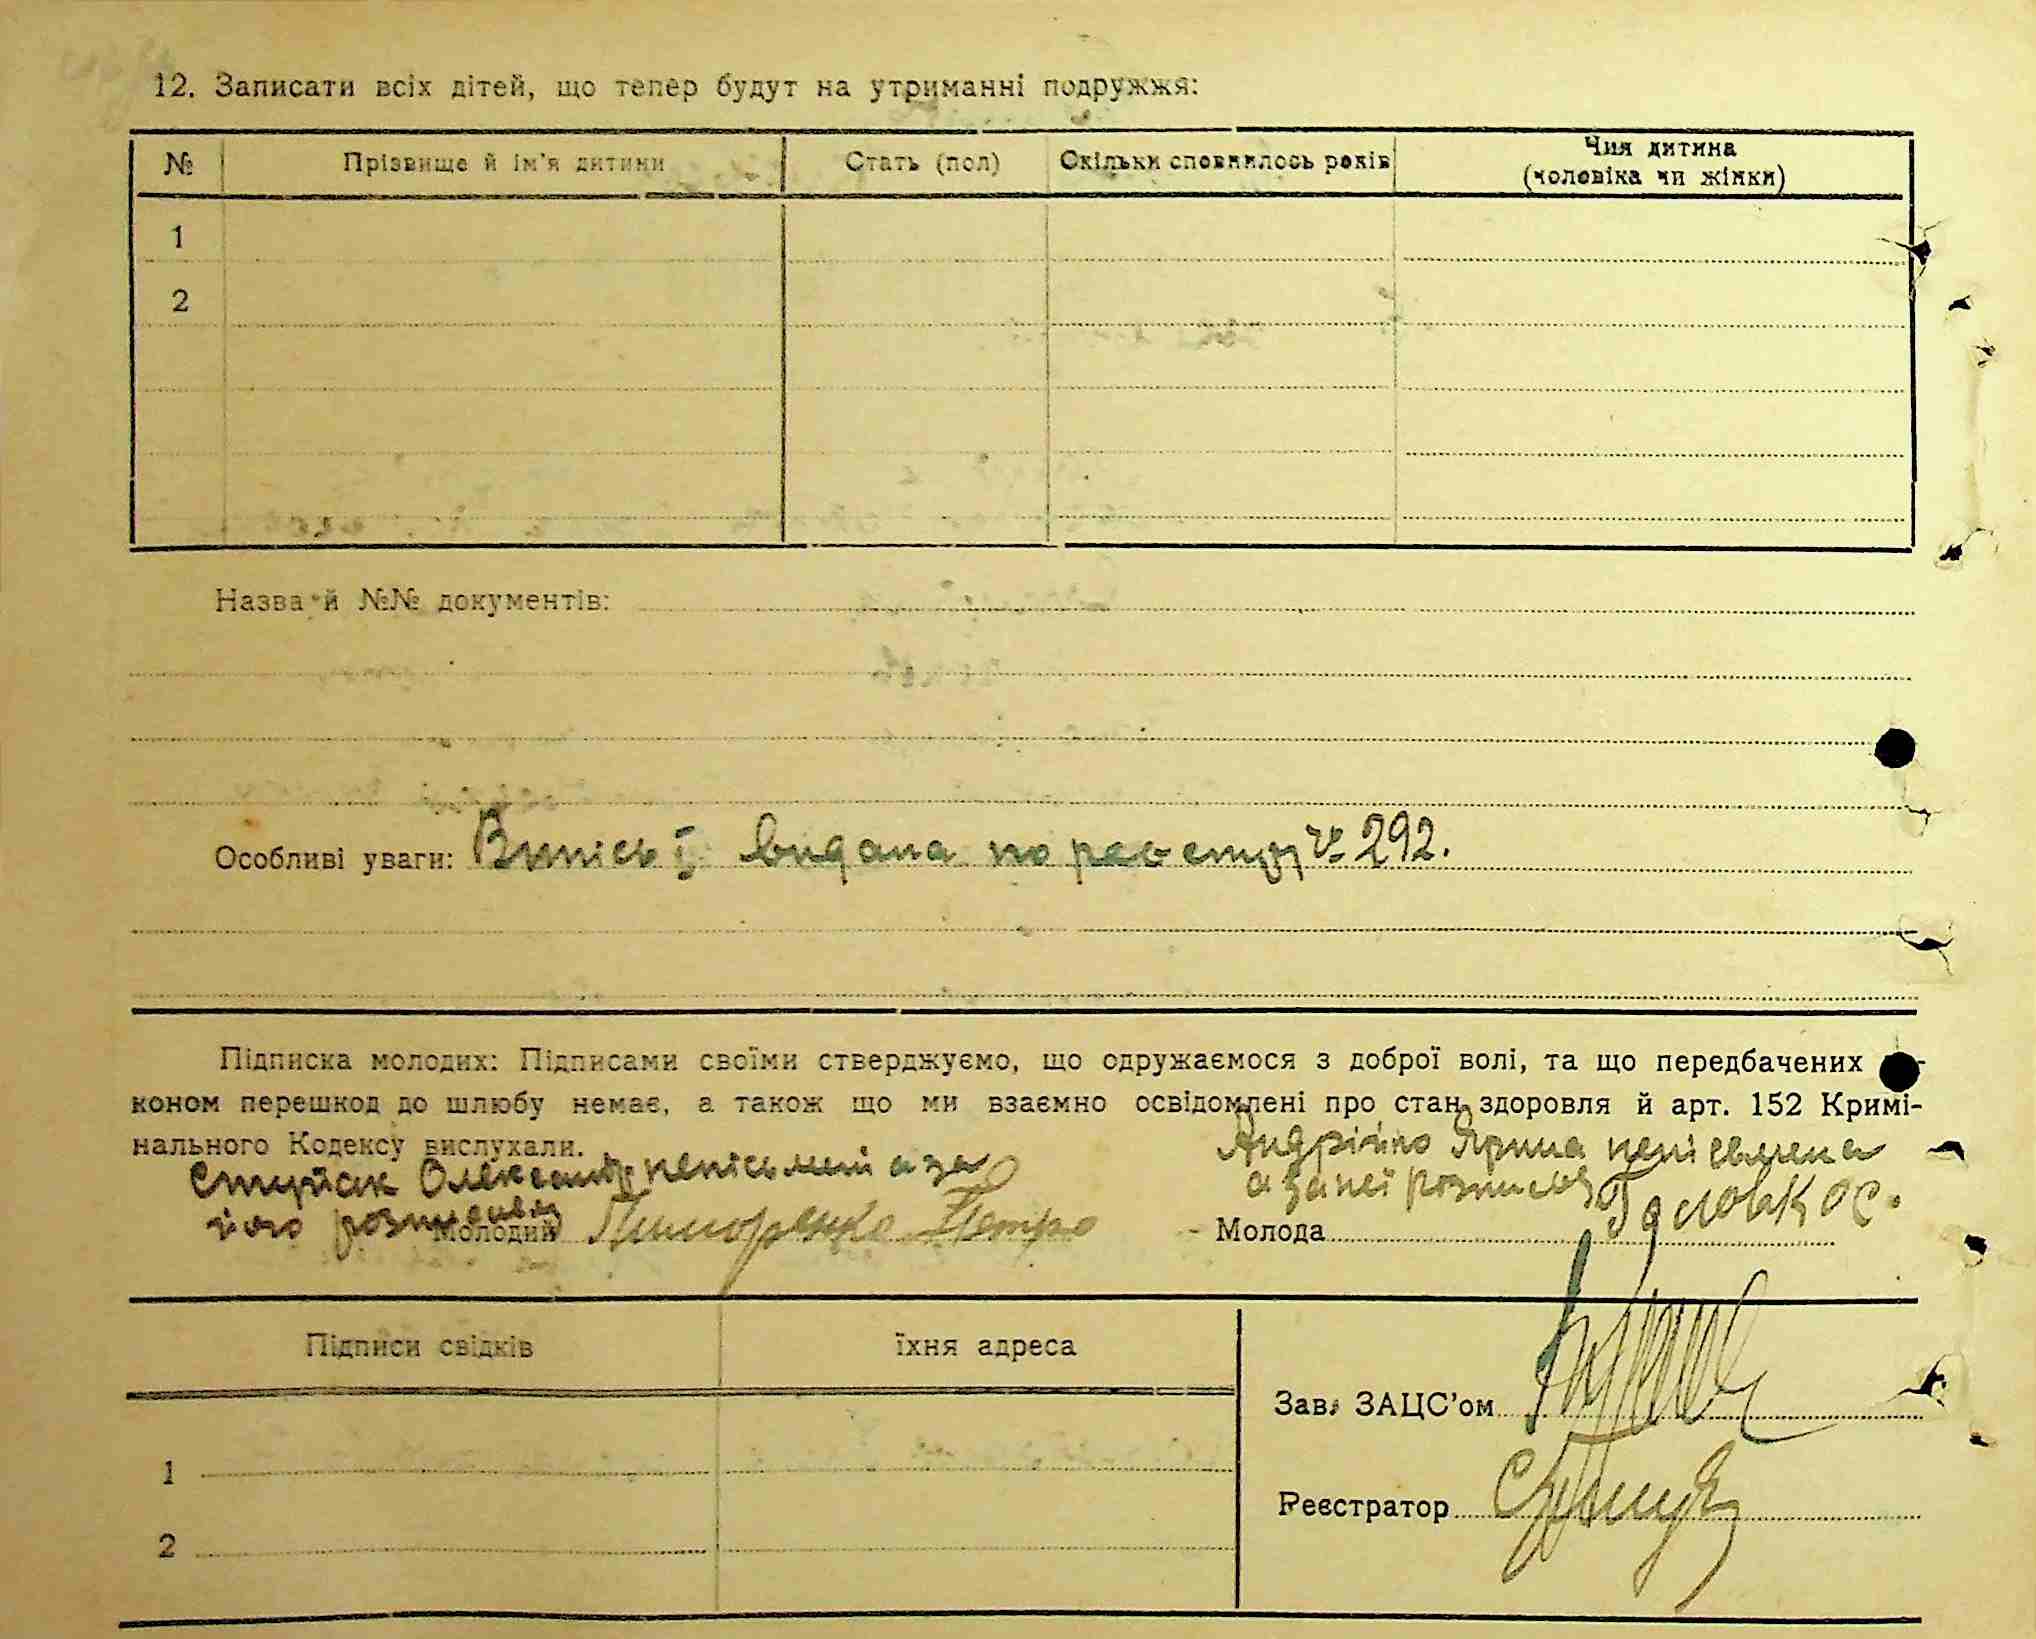 12. Записати всіх дітей, що тепер будут на утриманні подружжя:
№ Прізвище й ім'я дитини Стать (пол) Скільки сповнилось років Чия дитина (чоловіка чи жінки)
1
2
Назва й №№ документів:
Особливі уваги: Випісь І видана по реєстру № 292.
Підписка молодих: Підписами своїми стверджуємо, що одружаємося з доброї волі, та що передбачених
коном перешкод до шлюбу немає, а також що ми взаємно освідомлені про стан здоровля й арт. 152 Кримі-
нального Кодексу вислухали.
Олександр непісьмений а за
його розписався
Молодий Пономаренко Петро
Андрійко Ярина непісьмена
а за неї розписалась
Молода Головко С.
Підписи свідків їхня адреса
Зав. ЗАЦС'ом
1
Реєстратор
2